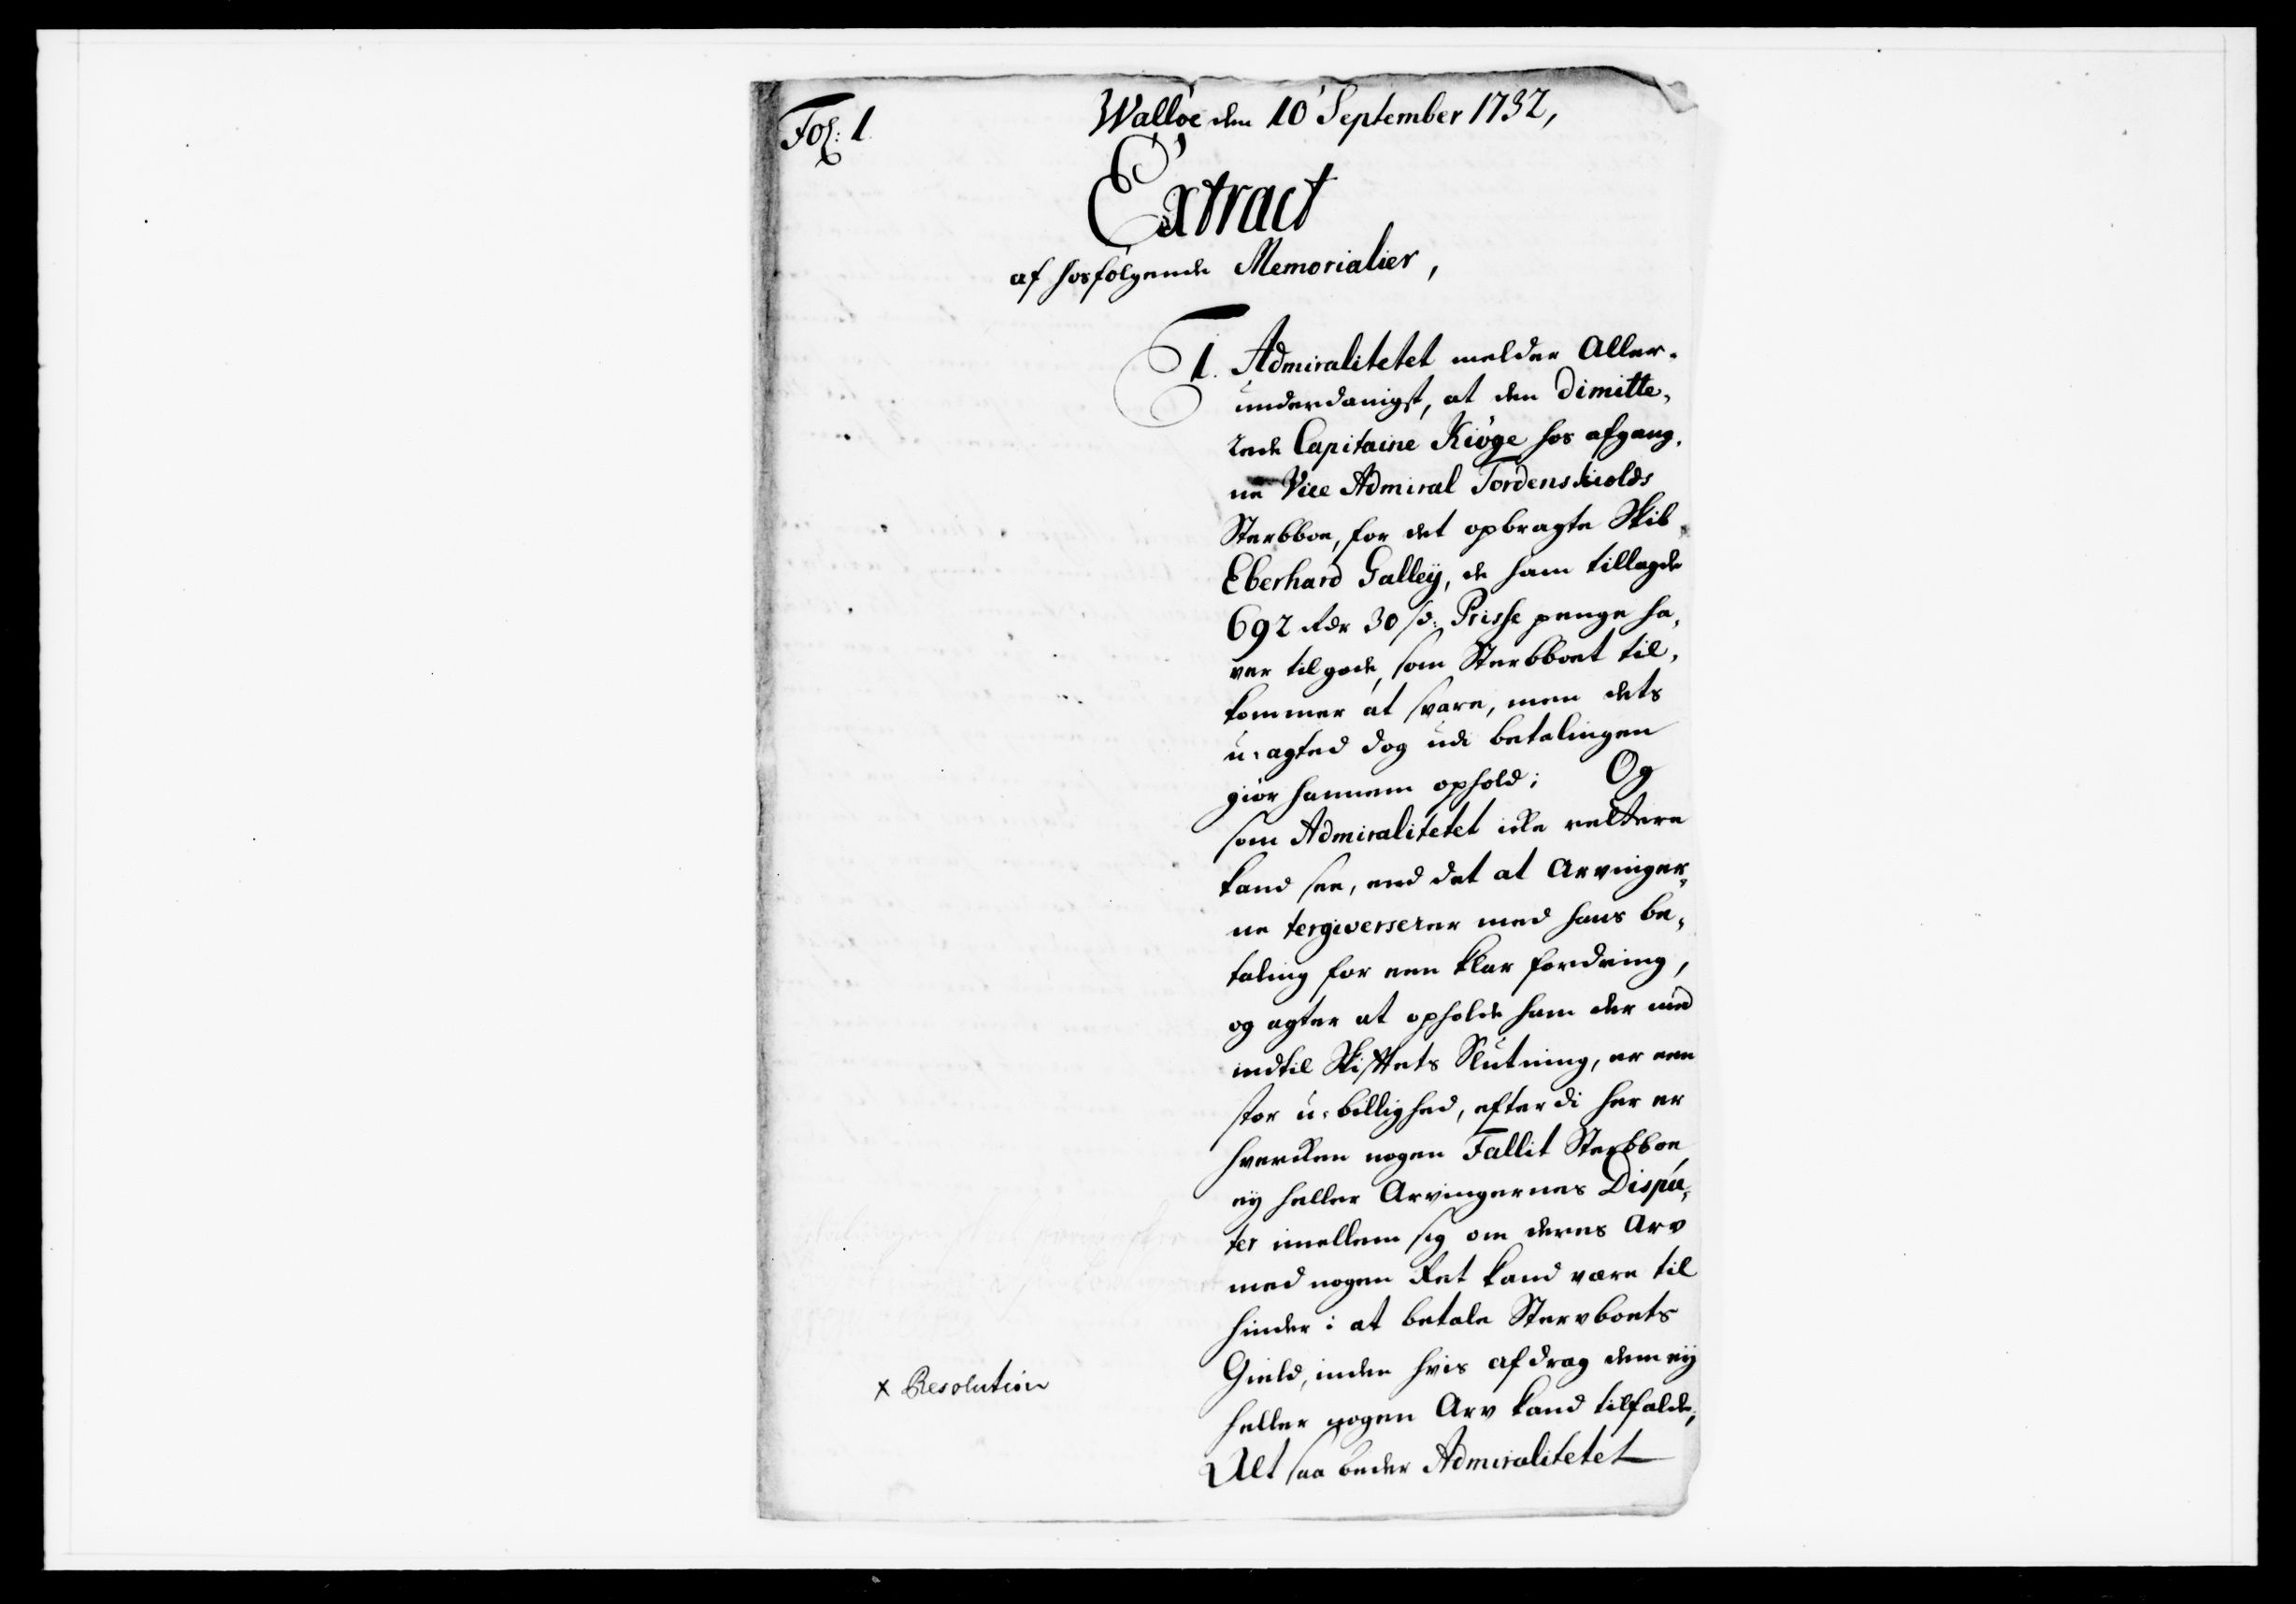 Fol: 1.
Walløe den 10 September 1732,
Extract
af hosfølgende Memorialier,
1. Admiralitetet melder Aller-
underdanigst, at den Dimitte-
rede Capitaine Kiöge hos afgang-
ne Vice Admiral Tordenskiolds
Sterbboe, for det opbragte Skib
Eberhard Galleÿ, de ham tillagde
692 Rdr 30 s: Prisse penge ha-
ver tilgode, som Sterbboet til-
kommer at svare, men dets
u-agted dog udi betalingen
giør hannem ophold; Og
som Admiralitetet icke rettere
kand see, end det at Arvinger-
ne tergiverserer med hans be-
taling for een klar fordring,
og agter at opholde ham der med
indtil Skiftets Slutning, er een
stor u-billighed, efterdi her er
hvercken nogen Fallit Sterbboe
eÿ heller Arvingernes Dispu-
ter imellem sig om deres Arv
med nogen Ret kand være til
hinder i at betale Stervboets
Gield, inden hvis afdrag dem eÿ
heller nogen Arv kand tilfalde;
Alt saa beder Admiralitetet
x Resolution